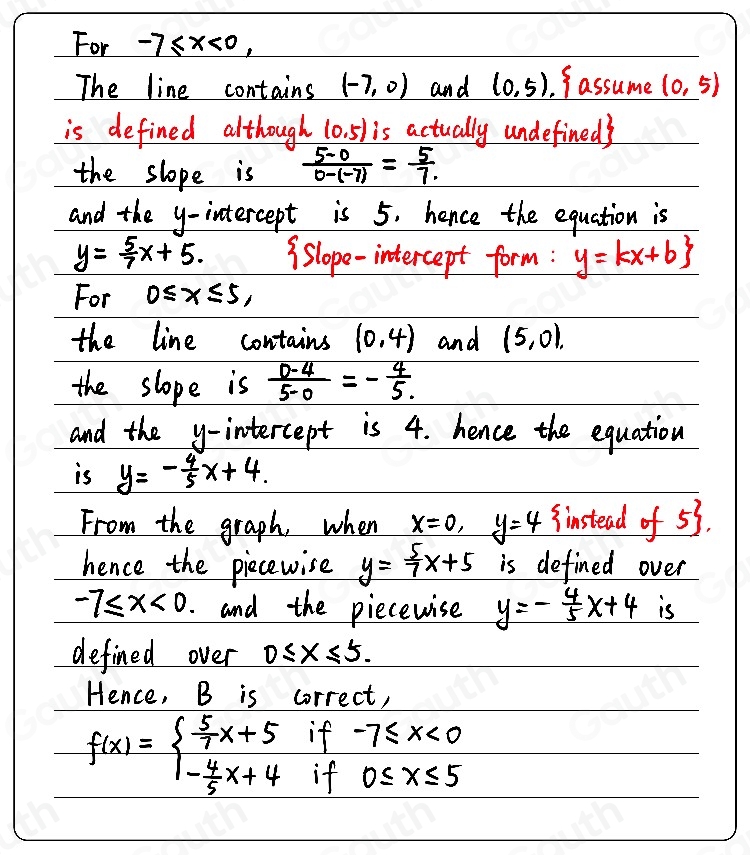 For -7≤x<0,
The line contains (-7,0) and (0,5). {assume (0,5)
is defined although (0.5) is actually undefined}
the slope is (5-0)/(0-(-7)) = 5/7.
and the y-intercept is 5, hence the equation is
y= 5/7x+5. {Slope-intercept form: y=kx+b}
For 0≤x≤5,
the line contains (0,4) and (5,0).
the slope is (0-4)/(5-0) = -4/5.
and the y-intercept is 4. hence the equation
is y= -4/5x+4.
From the graph, when x=0, y=4 {instead of 5}.
hence the piecewise y= 5/7x+5 is defined over
-7≤x<0. and the piecewise y=-4/5x+4 is
defined over 0≤x≤5.
Hence, B is correct,
f(x)= { 5/7x+5 if -7≤x<0
-4/5x+4 if 0≤x≤5